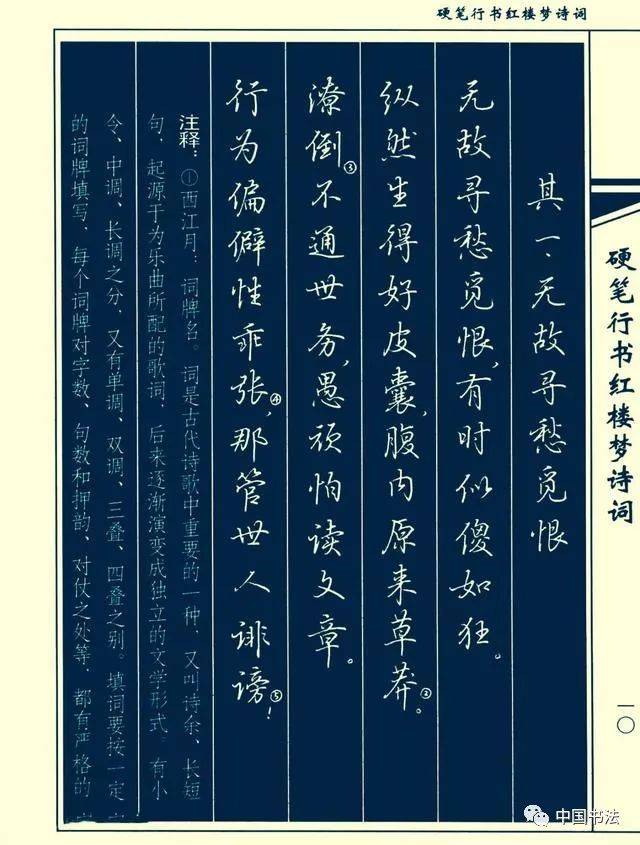 硬笔行书红楼梦诗词
其一、无故寻愁觅恨
无故寻愁觅恨,有时似傻如狂。
纵然生得好皮囊,腹内原来草莽②。
潦倒③不通世务,愚顽怕读文章。
行为偏僻性乖张④,那管世人诽谤⑤!
注释:①西江月:词牌名。词是古代诗歌中重要的一种,又叫诗余、长短
句,起源于为乐曲所配的歌词,后来逐渐演变成独立的文学形式。有小
令、中调、长调之分,又有单调、双调、三叠、四叠之别。填词要按一定
的词牌填写,每个词牌对字数、句数和押韵、对仗之处等,都有严格的
硬笔行书红楼梦诗词
一〇
中国书法